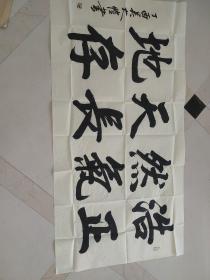 浩然天地
正氣長存
丁酉
書